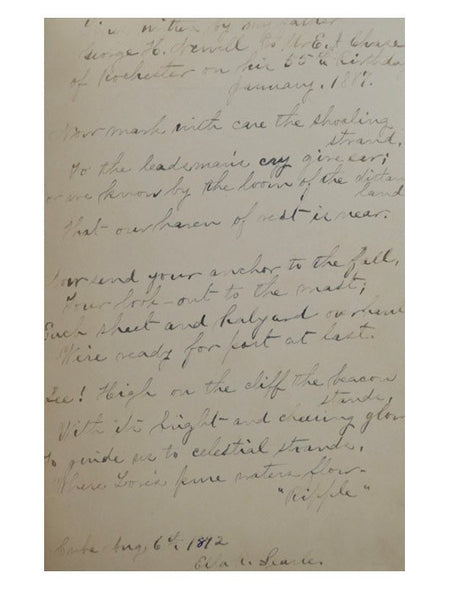 written by my father
George H. Newell to Mr E. A. Chase
of Rochester on his 55th Birthday
January, 1887.
Now mark with care the shoaling
strand,
To the leadsman's cry give ear;
or we know by the loom of the distan
land
That our haven of rest is near.
Now send your anchor to the fall,
Your look-out to the mast;
Each sheet and halyard overhaul
We're ready for port at last.
See! High on the cliff the beacon
stands,
With its bright and cheering glow
To guide us to celestial strands,
Where Love's pure waters flow.
"Ripple"
Cuba Aug. 6th, 1912
Ella C. Searle.